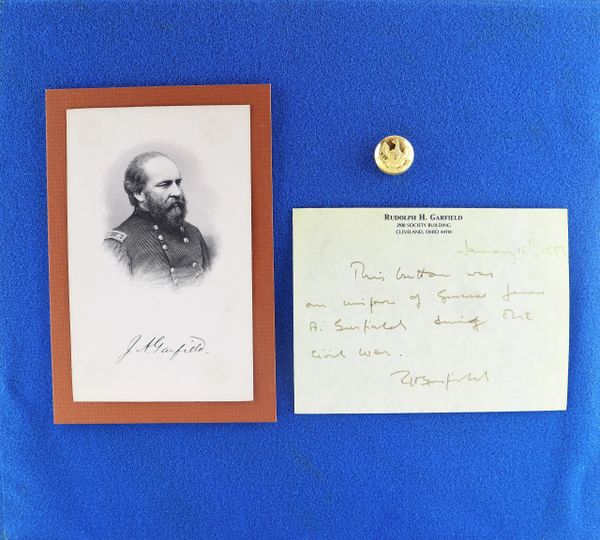 J. A. Garfield.
RUDOLPH H. GARFIELD
2100 SOCIETY BUILDING
CLEVELAND, OHIO 44114
January 15th
This button was
on uniform of General James
A. Garfield during the
Civil War.
RHGarfield